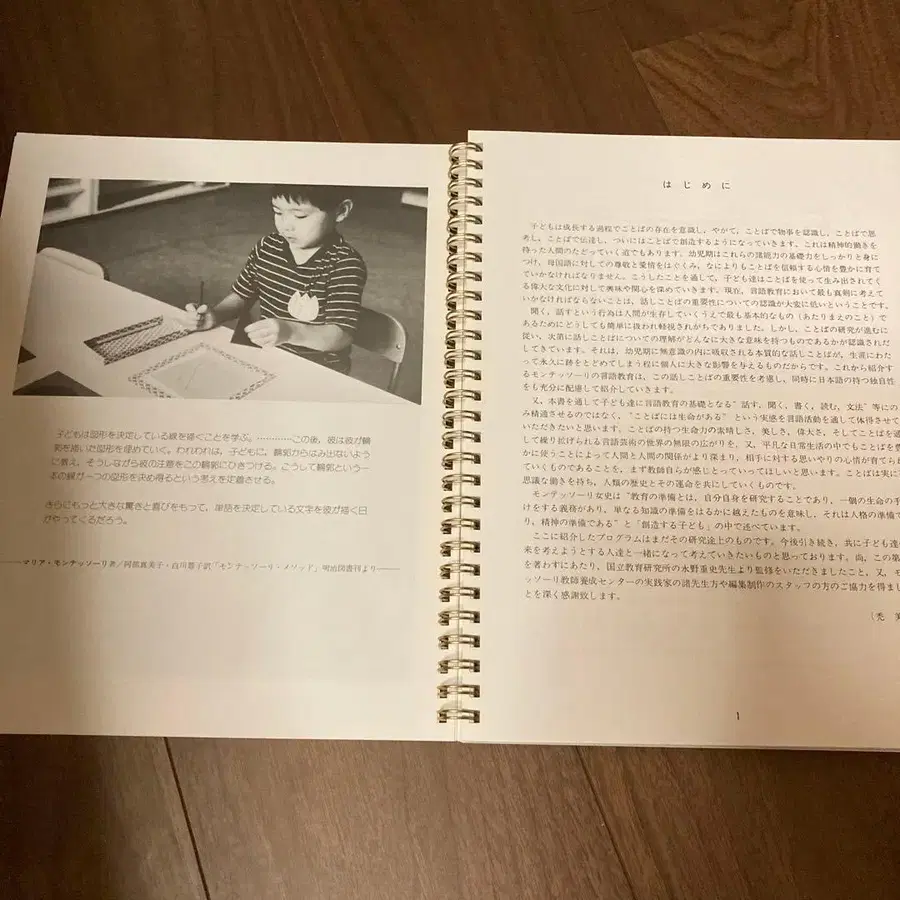 子どもは図形を決定している線を描くことを学ぶ。…………この後、彼は彼が輪
郭を描いた図形を埋めていく。われわれは、子どもに、輪郭からはみ出ないよう
に教え、そうしながら彼の注意をこの輪郭にひきつける。こうして輪郭という一
本の線が一つの図形を決め得るという考えを定着させる。
さらにもっと大きな驚きと喜びをもって、単語を決定している文字を彼が描く日
がやってくるだろう。
マリア・モンテッソーリ著／阿部真美子・白川蓉子訳「モンテッソーリ・メソッド」明治図書刊より
はじめに
子どもは成長する過程でことばの存在を意識し、やがて、ことばで物事を認識し、ことばで思
考し、ことばで伝達し、ついにはことばで創造するようになっていきます。これは精神的働きを
待った人間のたどっていく道でもあります。幼児期はこれらの諸能力の基礎力をしっかりと身に
つけ、母国語に対しての尊敬と愛情をはぐくみ、なによりもことばを信頼する心情を豊かに育て
ていかなければなりません。こうしたことを通して、子ども達はことばを使って生み出されてく
る偉大な文化に対して興味や関心を深めていきます。現在、言語教育において最も真剣に考えて
いかなければならないことは、話しことばの重要性についての認識が大変に低いということです。
聞く、話すという行為は人間が生存していくうえで最も基本的なもの（あたりまえのこと）で
あるためにどうしても簡単に扱われ軽視されがちでありました。しかし、ことばの研究が進むに
従い、次第に話しことばについての理解がどんなに大きな意味を持つものであるかが認識された
してきています。それは、幼児期に無意識の内に吸収される本質的な話しことばが、生涯にわた
って永久に跡をとどめてしまう程に個人に大きな影響を与えるものだからです。これから紹介す
るモンテッソーリの言語教育は、この話しことばの重要性を考慮し、同時に日本語の持つ独自性
をも充分に配慮して紹介していきます。
又、本書を通して子ども達に言語教育の基礎となる“話す、聞く、書く、読む、文法”等にの
み精通させるのではなく、“ことばには生命がある”という実感を言語活動を通して体得させて
いただきたいと思います。ことばの持つ生命力の素晴しさ、美しさ、偉大さ、そしてことばを通
して繰り拡げられる言語芸術の世界の無限の広がりを、又、平凡な日常生活の中でもことばを豊
かに使うことによって人間と人間の関係がより深まり、相手に対する思いやりの心情が育てられ
ていくものであることを、まず教師自らが感じとっていってほしいと思います。ことばは実に
思議な働きを持ち、人類の歴史とその運命を共にしていくものです。
モンテッソーリ女史は“教育の準備とは、自分自身を研究することであり、一個の生命の手
けをする義務があり、単なる知識の準備をはるかに越えたものを意味し、それは人格の準備で
り、精神の準備である”と「創造する子ども」の中で述べています。
ここに紹介したプログラムはまだその研究途上のものです。今後引き続き、共に子ども達
来を考えようとする人達と一緒になって考えていきたいものと思っております。尚、この
を著わすにあたり、国立教育研究所の永野重史先生より監修をいただきましたこと、又、モ
ッソーリ教師養成センターの実践家の諸先生方や編集制作のスタッフの方のご協力を得まし
とを深く感謝致します。
1